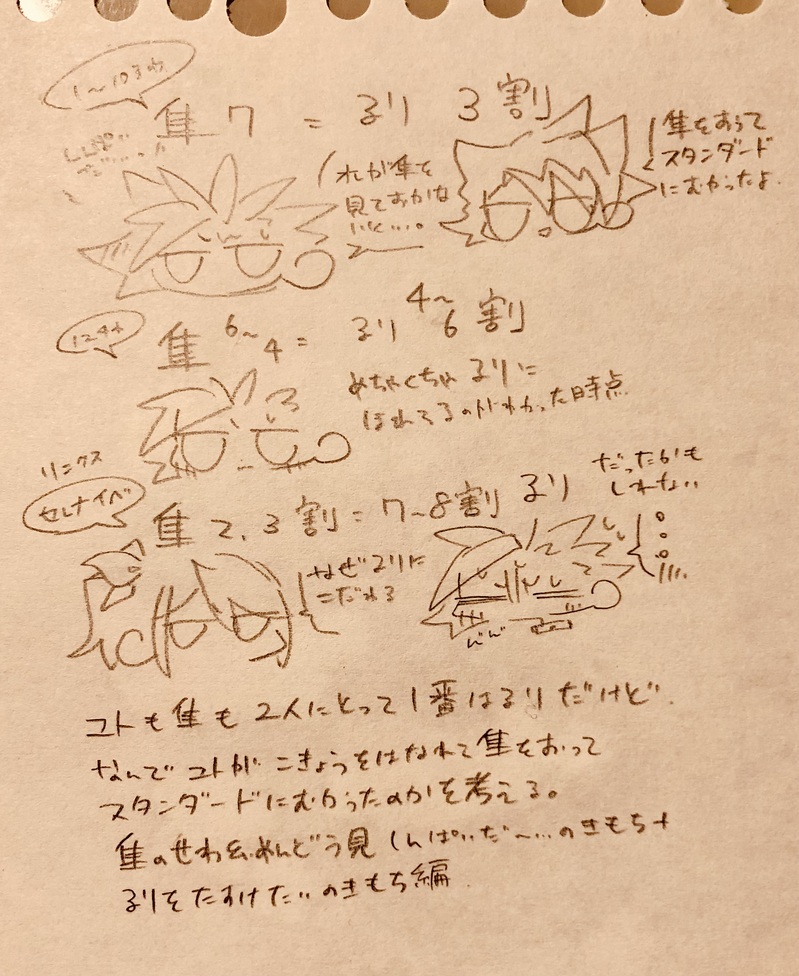 隼7 = るり 3割
しんぱい
だ……っ
れが隼を
見ておかな
いと…。
隼をおって
スタンダード
にむかったよ.
隼 6〜4 = るり 4〜6割
めちゃくちゃ るりに
ほれてるのがわかった時点
リニクス
セレナイベ
隼 2.3割 = 7〜8割 るり
だったかも
しれない
なぜるりに
こだわる
コトも隼も 2人にとって1番はるりだけど.
なんで コトが こきょうをはなれて隼をおって
スタンダードにむかったのかを考える。
隼のせわ&めんどう見 しんぱいだ〜…のきもち+
るりをたすけたいのきもち編